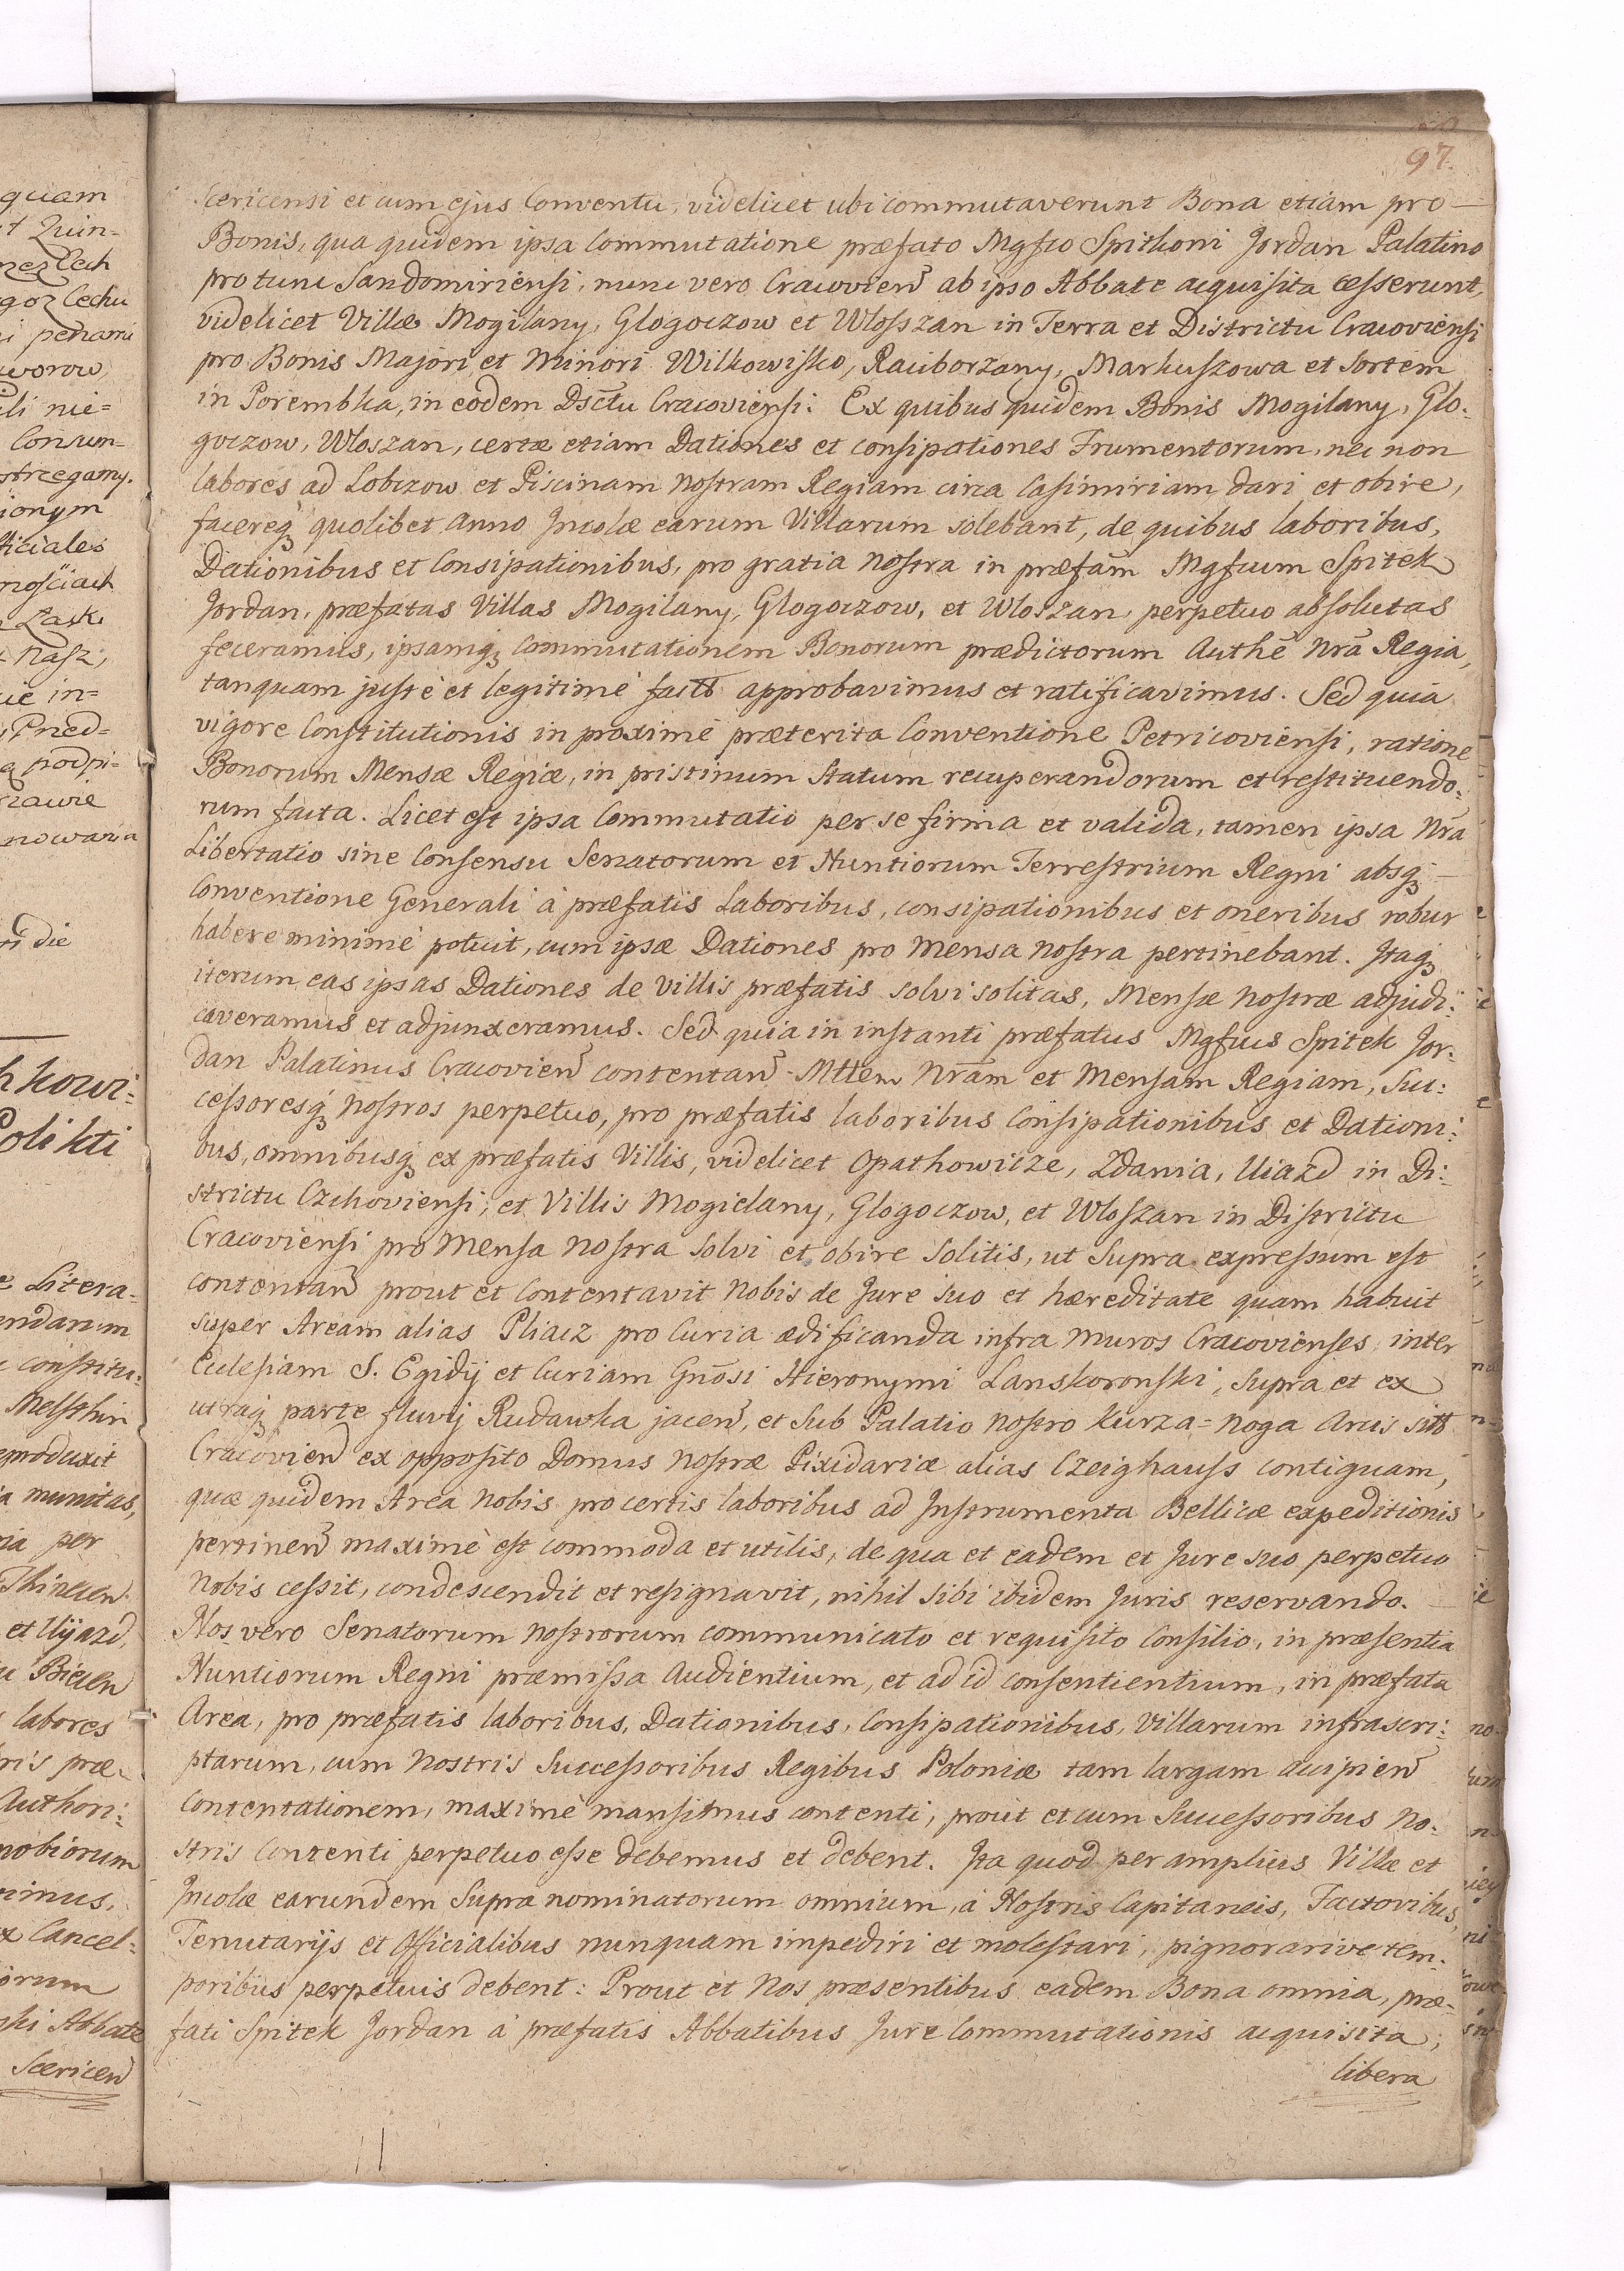 97.
Scericensi et cum ejus Conventu, videlicet ubi commutaverunt Bona etiam pro
Bonis, qua quidem ipsa Commutatione præfato Mgfco Spithoni Jordan Palatino
pro tunc Sandomiriensi, nunc vero Cracovien̄ ab ipso Abbate acquisita cesserunt,
videlicet Villæ Mogilany, Glogoczow et Wlosszan in Terra et Districtu Cracoviensi
pro Bonis Majori et Minori Wilkowisko, Raciborzany, Markuszowa et Sortem
in Porembka, in eodem Dsc̄tu Cracoviensi: Ex quibus quidem Bonis Mogilany, Glo:
goczow, Wloszan, certæ etiam Dationes et consipationes Frumentorum, nec non
labores ad Lobczow et Piscinam nostram Regiam circa Casimiriam dari et obire,
facereq₃ quolibet Anno Jncolæ earum Villarum solebant, de quibus laboribus,
Dationibus et Consipationibus, pro gratia nostra in præfām Mgfcum Spitek
Jordan, præfatas Villas Mogilany, Glogoczow, et Wloszan, perpetuo absolutas
feceramus, ipsamq₃ Commutationem Bonorum prædictorum Authē Nrā Regia,
tanquam justè et legitimè factā approbavimus et ratificavimus. Sed quia
vigore Constitutionis in proximè præterita Conventione Petricoviensi, ratione
Bonorum Mensæ Regiæ, in pristinum Statum recuperandorum et restituendo:
rum facta. Licet est ipsa Commutatio per se firma et valida, tamen ipsa Nrā
Libertatio sine Consensu Senatorum et Nuntiorum Terrestrium Regni absq₃
Conventione Generali à præfatis Laboribus, consipationibus et oneribus robur
habere minimè potuit, cum ipsæ Dationes pro Mensa nostra pertinebant. Jtaq₃
iterum eas ipsas Dationes de Villis præfatis solvi solitas, Mensæ nostræ adjudi:
caveramus et adjunxeramus. Sed quia in instanti præfatus Mgfcus Spitek Jor:
dan Palatinus Cracovien̄ contentan̄ Mttem Nrām et Mensam Regiam, Suc:
cessoresq₃ nostros perpetuo, pro præfatis laboribus Consipationibus et Dationi:
bus, omnibusq₃ ex præfatis Villis, videlicet Opathowicze, Zdania, Uiazd in Di:
strictu Czchoviensi, et Villis Mogielany, Glogoczow, et Wloszan in Districtu
Cracoviensi pro Mensa nostra solvi et obire Solitis, ut Supra expressum est
contentan̄ prout et Contentavit Nobis de Jure Suo et hæreditate quam habuit
super Aream alias Pliacz pro Curia ædificanda infra muros Cracovienses, inter
Ecclesiam S. Egidij et Curiam Gnōsi Hieronymi Lanskoronski, Supra et ex
utraq₃ parte fluvij Rudawka jacen̄, et Sub Palatio nostro Kurza=noga Arcis
Cracovien̄ ex opposito Domus nostræ Pixidariæ alias Czeighauss contiguam,
quæ quidem Area Nobis pro certis laboribus ad Jnstrumenta Bellicæ expeditionis
pertinen̄ maximè est commoda et utilis, de qua et eadem et Jure suo perpetuo
Nobis cessit, condescendit et resignavit, nihil Sibi ibidem Juris reservando.
Nos vero Senatorum nostrorum communicato et requisito Consilio, in præsentia
Nuntiorum Regni præmissa Audientium, et ad id consentientium, in præfata
Area, pro præfatis laboribus, Dationibus, Consipationibus, Villarum infrascri:
ptarum, cum Nostris Successoribus Regibus Poloniæ tam largam accipien̄
Contentationem, maximè mansimus contenti, prout et cum Successoribus No:
stris Contenti perpetuo esse debemus et debent. Jta quod per amplius Villæ et
Jncolæ earundem Supra nominatorum omnium, à Nostris Capitaneis, Factoribus,
Tenutarijs et Officialibus nunquam impediri et molestari, pignorarive tem:
poribus perpetuis debent: Prout et Nos præsentibus eadem Bona omnia, præ:
fati Spitek Jordan à præfatis Abbatibus Jure Commutationis acquisita,
libera